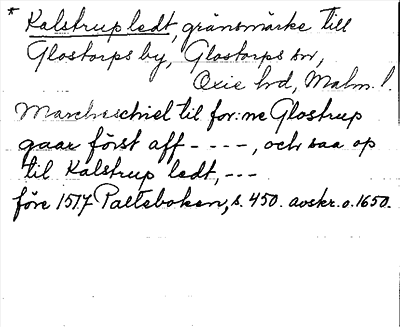 * Kalstrup ledt, gränsmärke till
Glostorps by, Glostorps sn,
Oxie hrd, Malm. l.
Marcheschiel til for:ne Glostrup
gaar först aff - - - -, och saa op
til Kalstrup ledt, - - -
före 1517 Palteboken, s. 450. avskr. o. 1650.